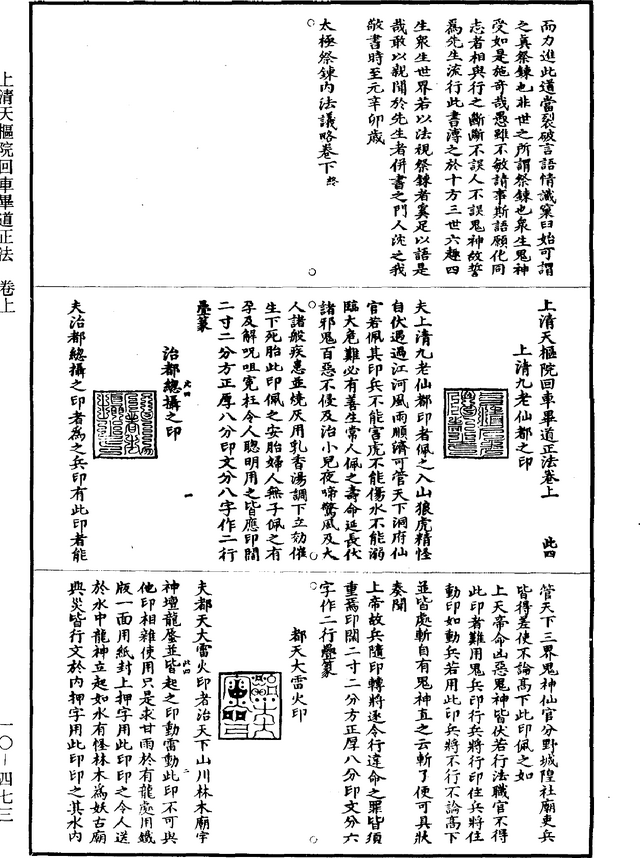 上清天樞院回車畢道正法　卷上
一〇—四七三
而力進此道當裂破言語情識窠臼始可謂
之真祭鍊也非世之所謂祭鍊也衆生鬼神
受如是施奇哉愚雖不敏請事斯語願化同
志者相與行之斷斷不誤人不誤鬼神故誓
爲先生流行此書溥之於十方三世六趣四
生衆生世界若以法視祭鍊者奚足以語是
哉敢以親聞於先生者併書之門人沈之我
敬書時至元辛卯歲
太極祭鍊內法議略卷下終
上清天樞院回車畢道正法卷上　此四
上清九老仙都之印
夫上清九老仙都印者佩之入山狼虎精怪
自伏遇過江河風雨順濟可管天下洞府仙
官若佩其印兵不能害虎不能傷水不能溺
臨大危難必有善生常人佩之壽命延長伏
諸邪鬼百惡不侵及治小兒夜啼驚風及大
人諸般疾患並燒灰用乳香湯調下立効催
生下死胎此印佩之安胎婦人無子佩之有
孕及解呪咀寃枉令人聰明用之皆應印闊
二寸二分方正厚八分印文分八字作二行
疊篆
治都總攝之印
夫治都總攝之印者為之兵印有此印者能
管天下三界鬼神仙官分野城隍社廟吏兵
皆得差使不論高下此印佩之如
上天帝命凶惡鬼神皆伏若行法職官不得
此印者難用鬼兵印行兵將行印住兵將住
動印如動兵若用此印兵將不行不論高下
並皆處斬自有鬼神直之云斬了便可具狀
奏聞
上帝故兵隨印轉將逐令行違命之罪皆須
重焉印闊二寸二分方正厚八分印文分六
字作二行疊篆
都天大雷火印
夫都天大雷火印者治天下山川林木廟宇
神壇龍蜃並皆起之印動雷動此印不可與
他印相雜使用只是求甘雨於有龍處用鐵
版一面用紙封上押字用此印印之令人送
於水中龍神立起如水有怪林木為妖古廟
興災皆行文於內押字用此印印之其水內